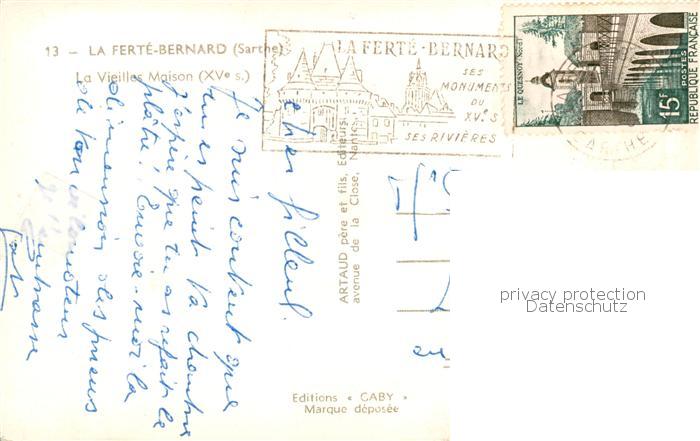 13 — LA FERTÉ-BERNARD (Sarthe)
La Vieilles Maison (XVe s.)
LA FERTÉ-BERNARD
SES
MONUMENTS
DU
XVe S
SES RIVIÈRES
LE QUESNOY NORD
15F
REPUBLIQUE FRANÇAISE
SARTHE
Cher filleul.
Je suis content que
tu as peint ta chambre
J'espère que tu as refait le
plâtre. Envoie-moi la
dimension des pneus
de ton
ARTAUD père et fils, Editeurs
avenue de la Close, Nantes
au
privacy protection
Datenschutz
Editions « GABY »
Marque déposée